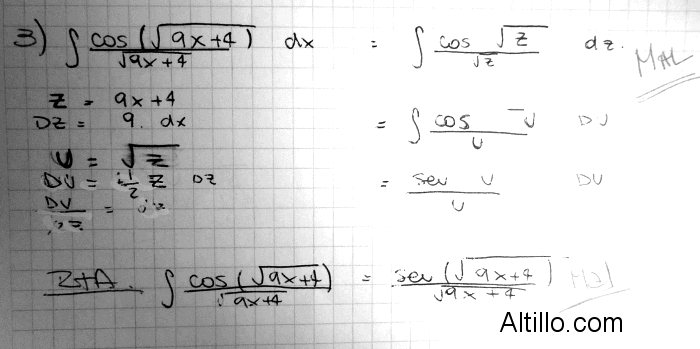 3) ∫ cos (√9x+4) / √9x+4 dx = ∫ cos √z / √z dz. MAL
z = 9x+4
Dz = 9. dx = ∫ cos U / U DU
U = √z
DU = 1/2 z Dz = sen U / U DU
DU
RTA. ∫ cos (√9x+4) / √9x+4 = sen (√9x+4) / √9x+4 MAL
Altillo.com